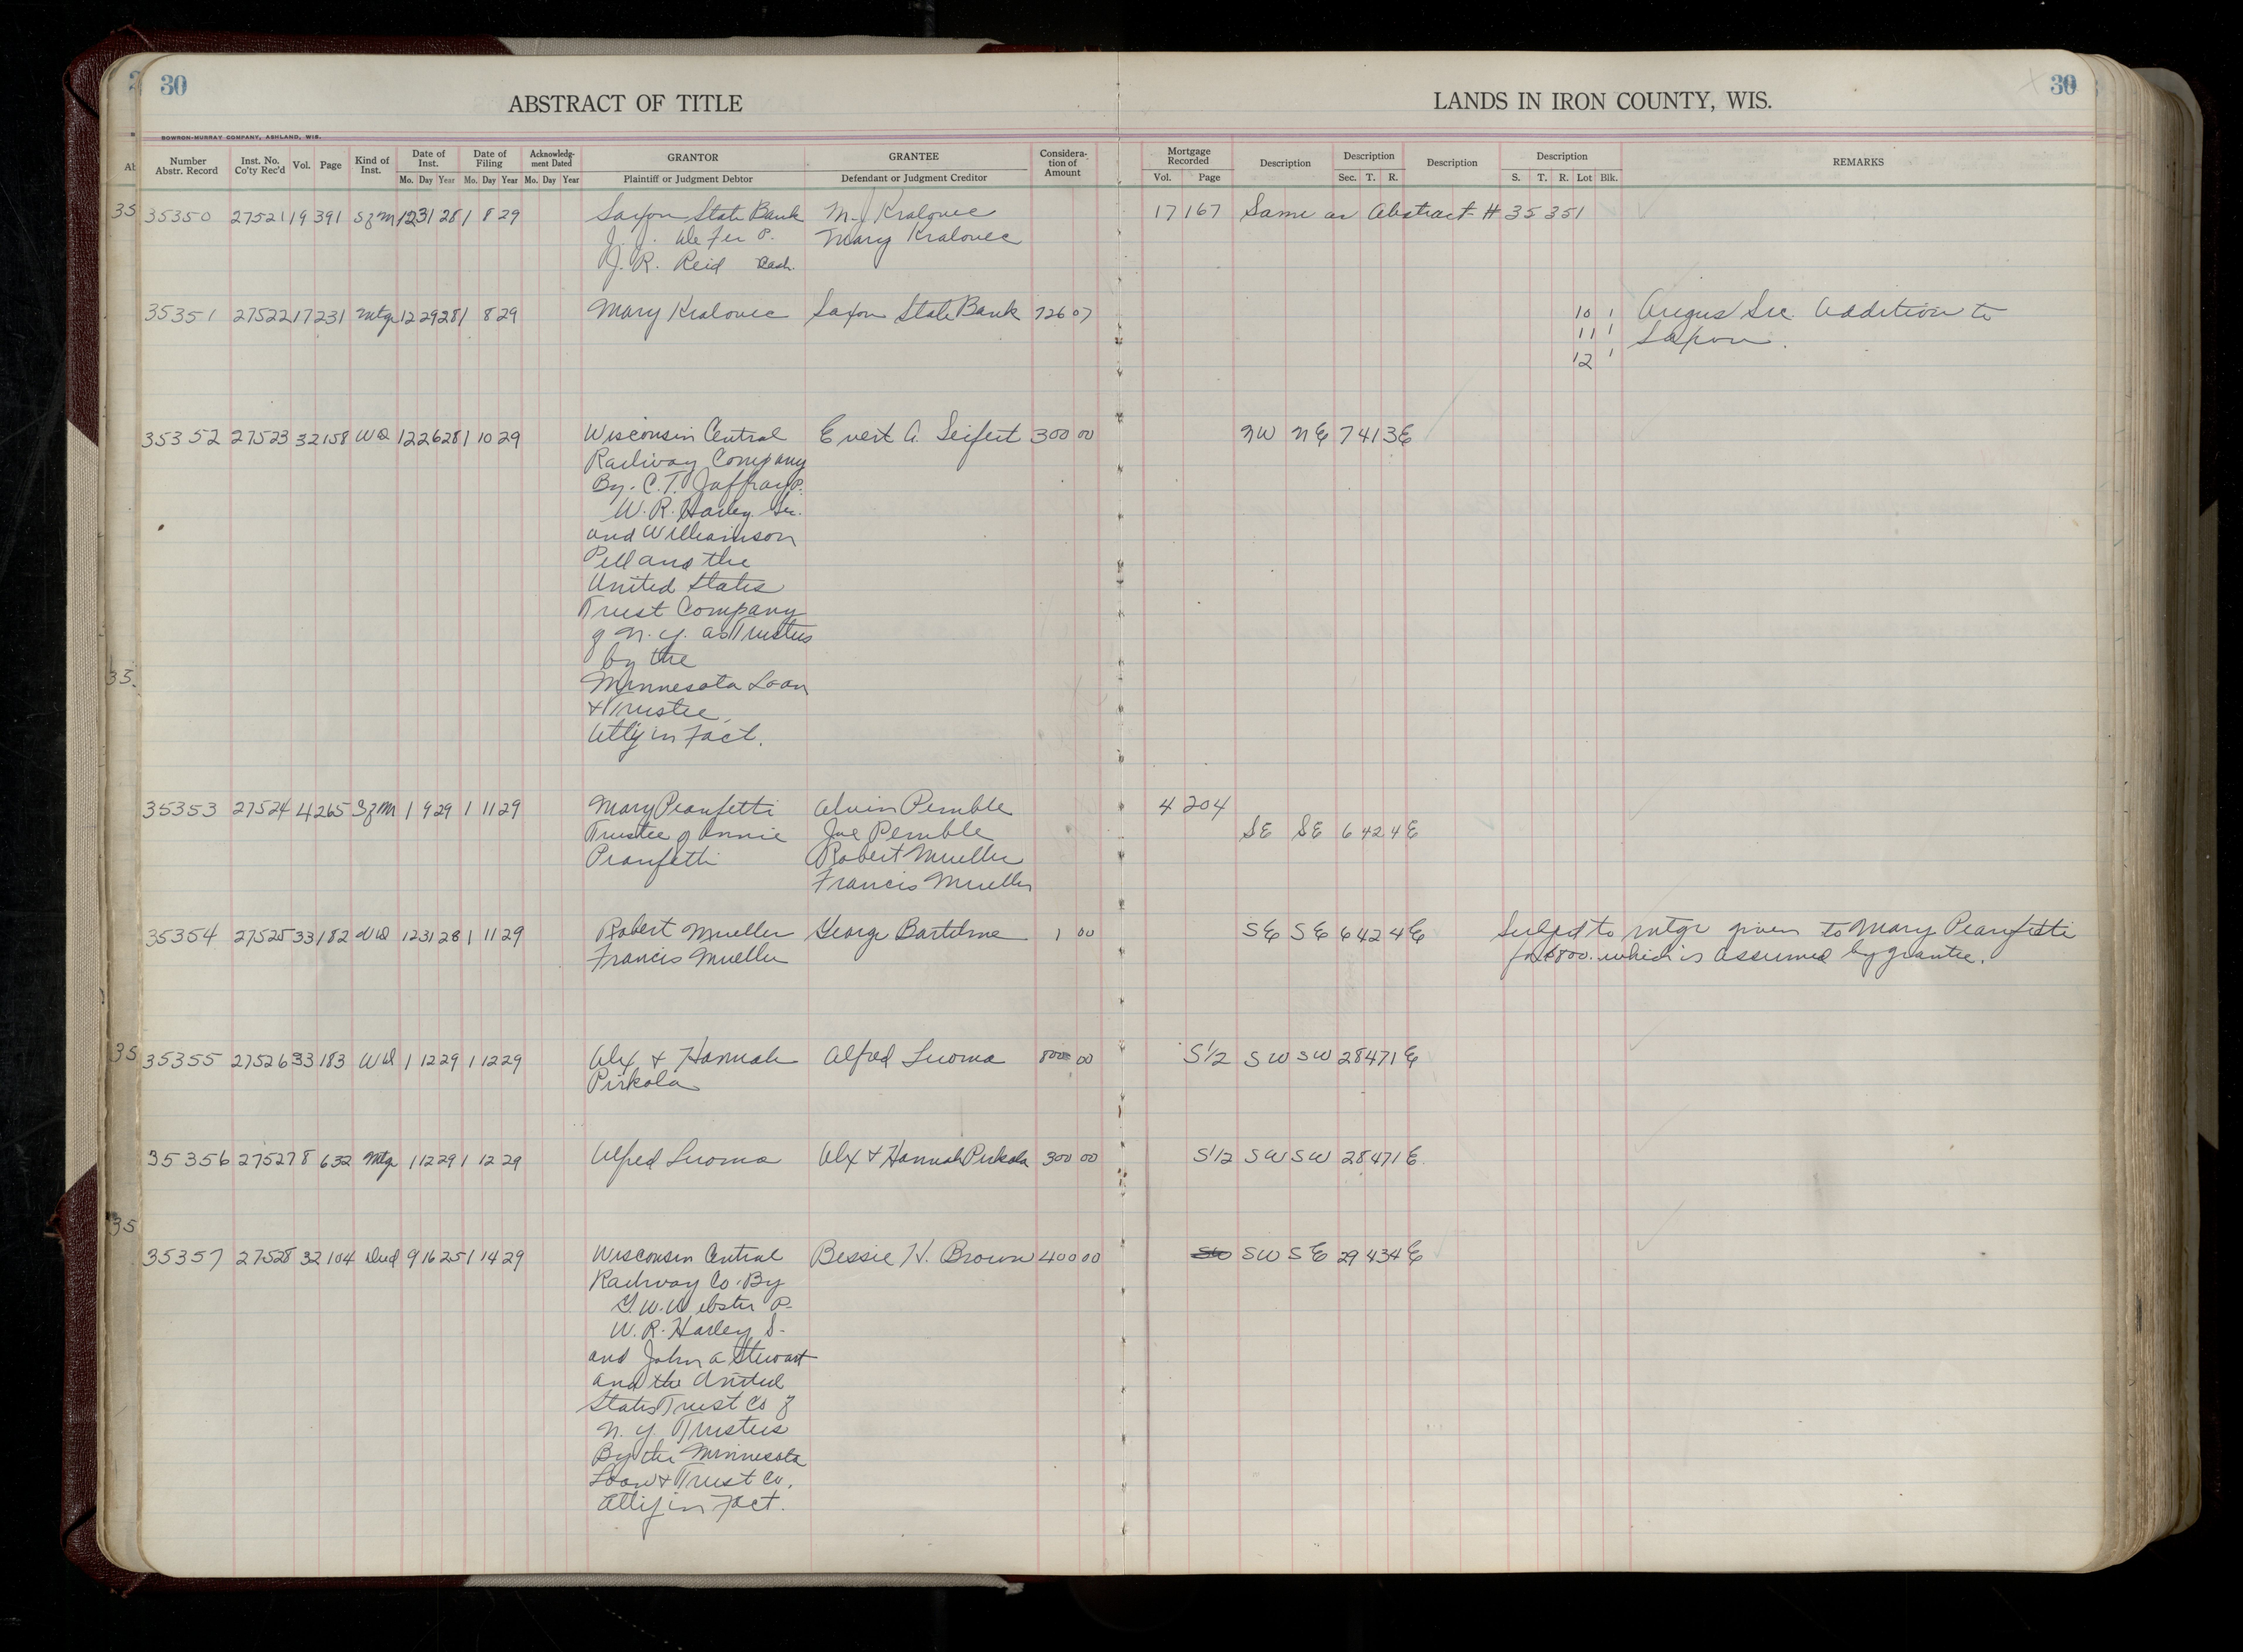 30
ABSTRACT OF TITLE
LANDS IN IRON COUNTY, WIS.
30
BOWRON-MURRAY COMPANY, ASHLAND, WIS.
Number Abstr. Record Inst. No. Co'ty Rec'd Vol. Page Kind of Inst. Date of Inst. Date of Filing Acknowledg-ment Dated GRANTOR GRANTEE Considera-tion of Amount Mortgage Recorded Description Description Description Description REMARKS
Mo. Day Year Mo. Day Year Mo. Day Year Plaintiff or Judgment Debtor Defendant or Judgment Creditor Vol. Page Sec. T. R. S. T. R. Lot Blk.
35350 27521 19 391 Szm 12 31 28 1 8 29 Saxon State Bank M. J. Kralovec 17 167 Same as Abstract # 35351
J. J. P. Mary Kralovec
J. R. Reid Cash.
35351 27522 17 231 Mtg 12 29 28 1 8 29 Mary Kralovec Saxon State Bank 726 07 10 1 Angus Sec. Addition to
11 1 Saxon.
12 1
35352 27523 32 158 WD 12 26 28 1 10 29 Wisconsin Central Evert A. Seifert 300 00 NW NE 7 41 3E
Railway Company
By. C. T. Jaffray P.
W. R. Harley Sec.
and Williamson
Pell and the
United States
Trust Company
of N. Y. as Trustees
by the
Minnesota Loan
& Trustee,
Att'y in Fact.
35353 27524 4 265 Szm 1 9 29 1 11 29 Mary Pranfetti Alvin Pemble 4 204
Trustee of Annie Joe Pemble SE SE 6 42 4E
Pranfetti Robert Mueller
Francis Mueller
35354 27525 33 182 WD 12 31 28 1 11 29 Robert Mueller George Bartelme 1 00 SE SE 6 42 4E Subject to mtge given to Mary Pranfetti
Francis Mueller for $800. which is assumed by grantee.
35355 27526 33 183 WD 1 12 29 1 12 29 Alex & Hannah Alfred Luoma 800 00 S1/2 SW SW 28 47 1E
Pirkola
35356 27527 8 632 Mtg 1 12 29 1 12 29 Alfred Luoma Alex & Hannah Pirkola 300 00 S1/2 SW SW 28 47 1E
35357 27528 32 104 Deed 9 16 25 1 14 29 Wisconsin Central Bessie H. Brown 400 00 SW SW SE 29 43 4E
Railway Co. By
G. W. Webster P.
W. R. Harley S.
and John A Stewart
and the United
States Trust Co of
N. Y. Trustees
By the Minnesota
Loan & Trust Co.
Att'y in Fact.